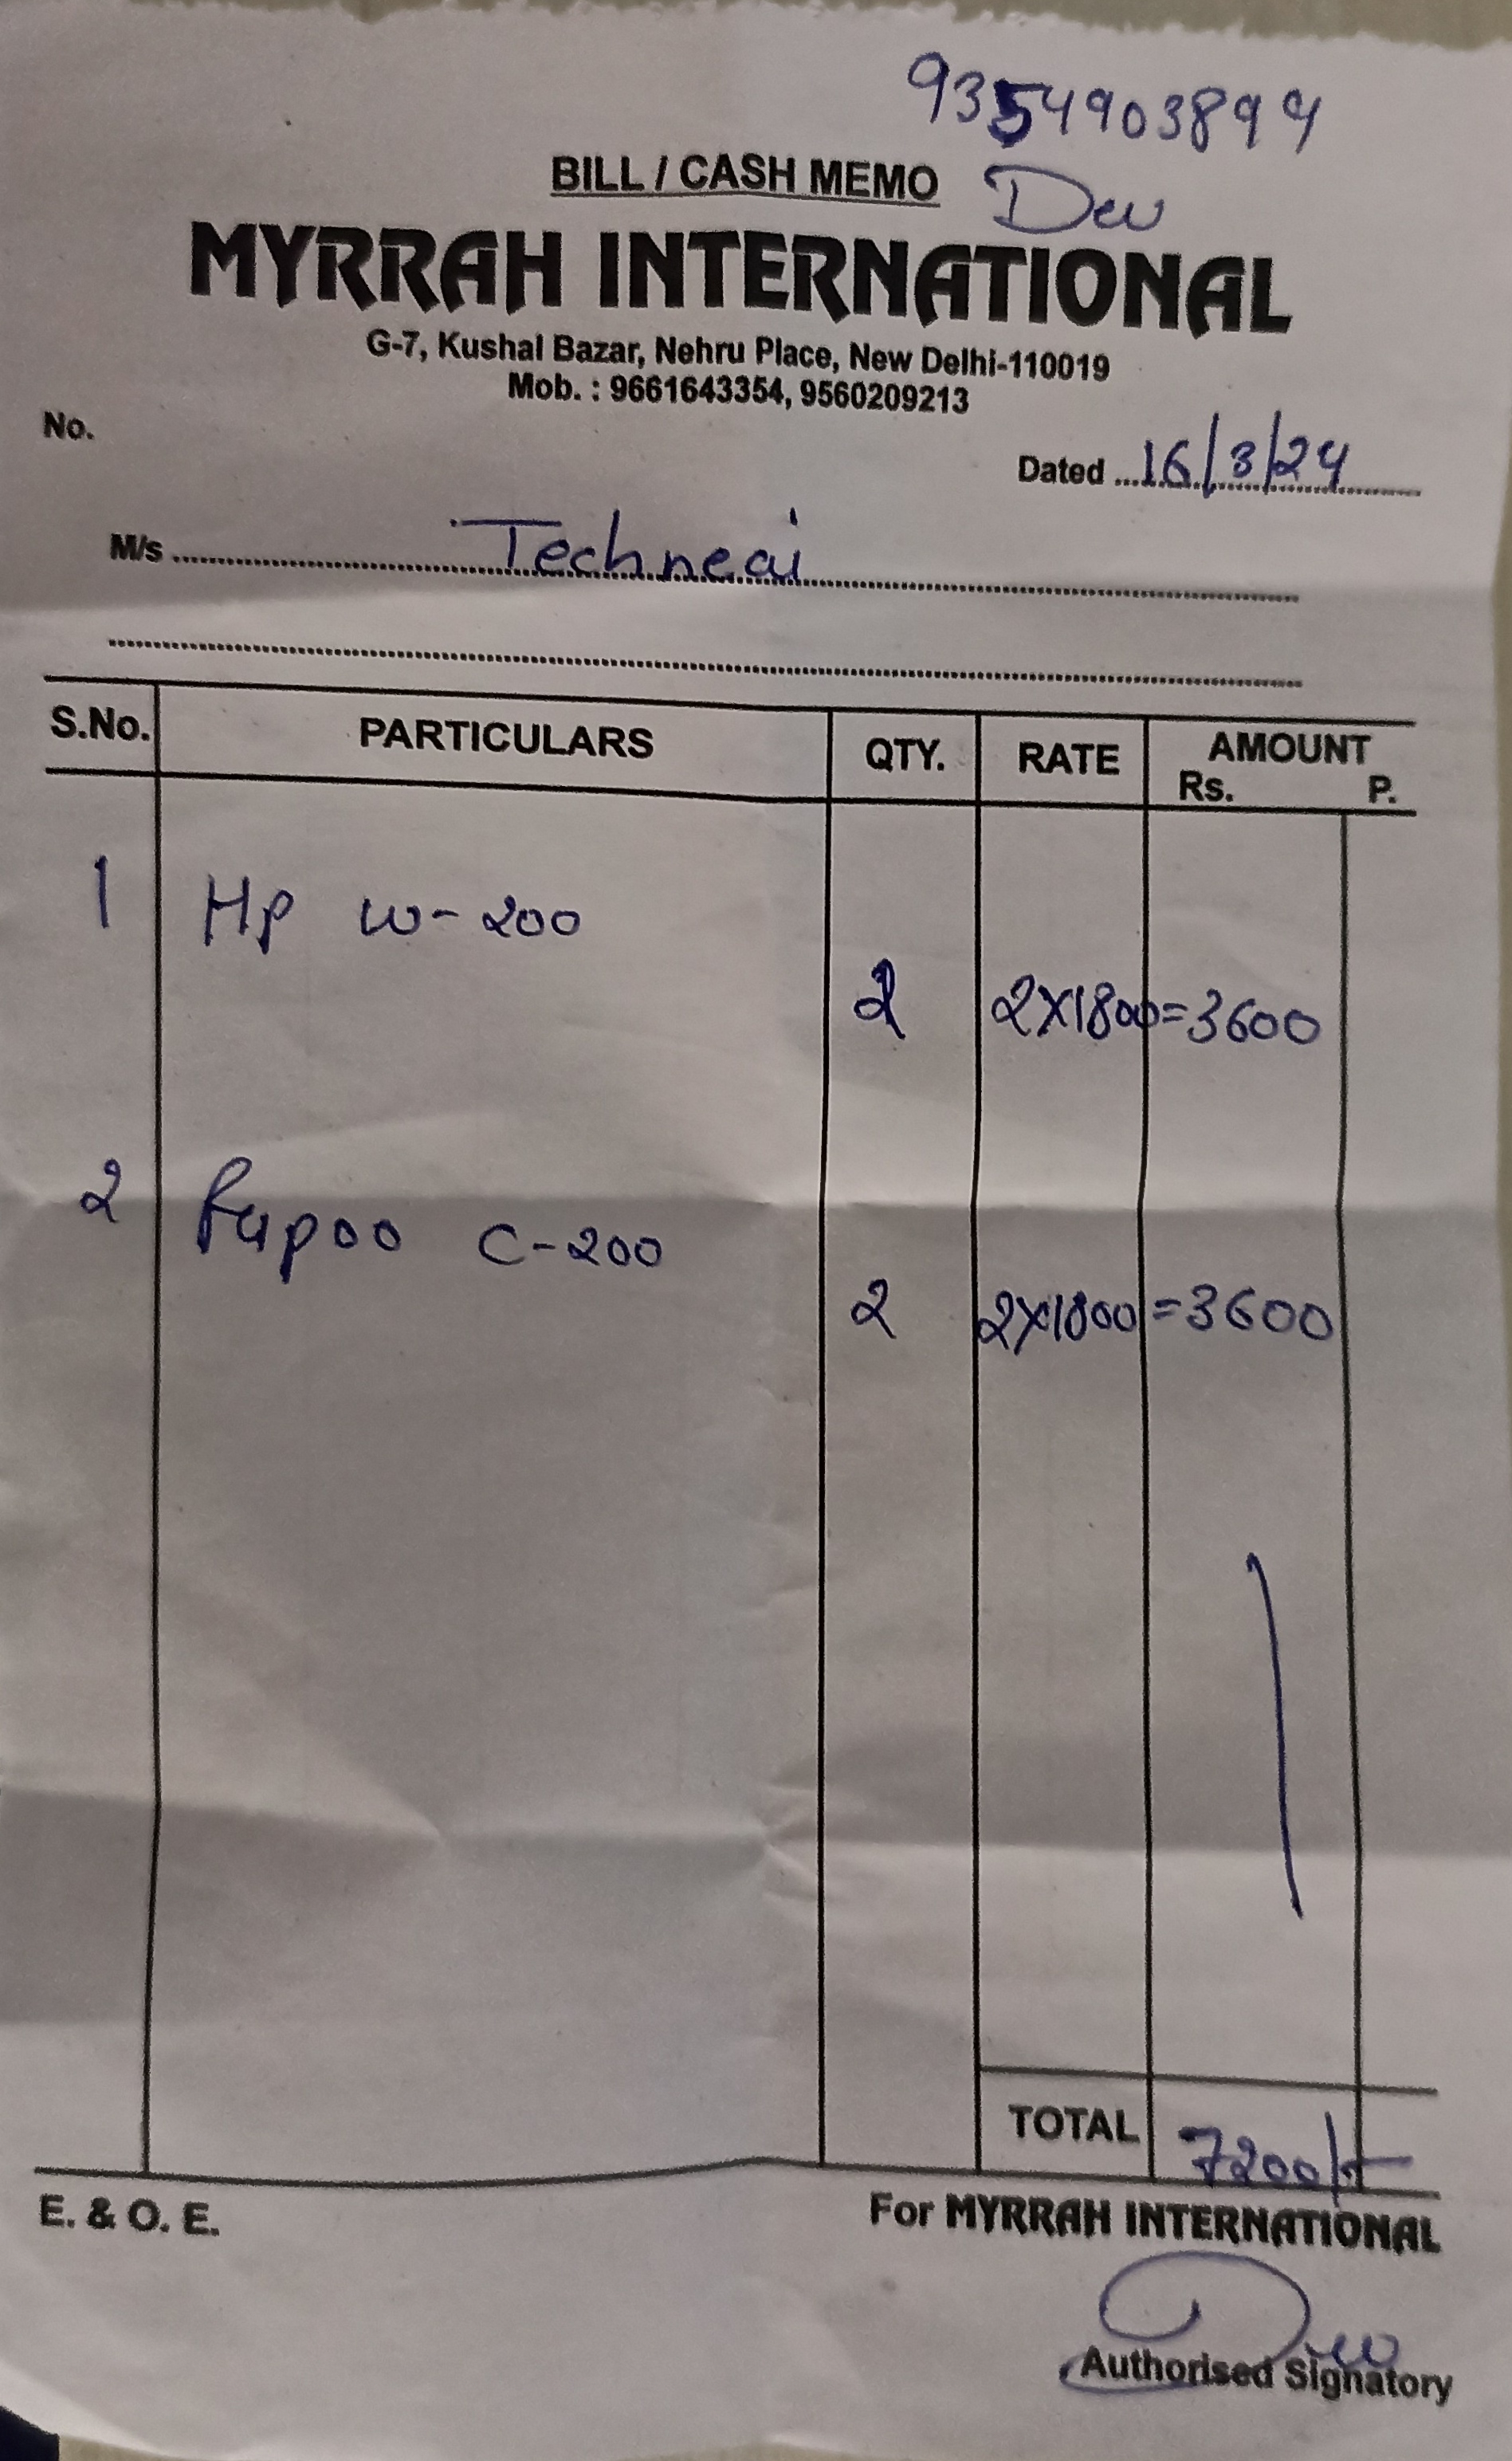 9354903894
BILL / CASH MEMO Dev
MYRRAH INTERNATIONAL
G-7, Kushal Bazar, Nehru Place, New Delhi-110019
Mob. : 9661643354, 9560209213
No.
Dated 16/3/24
M/s Techneai
S.No. PARTICULARS QTY. RATE AMOUNT
Rs. P.
1 Hp W-200
2 2X1800=3600
2 Rapoo C-200
2 2X1800=3600
TOTAL 7200/-
E. & O. E. For MYRRAH INTERNATIONAL
Dev
Authorised Signatory